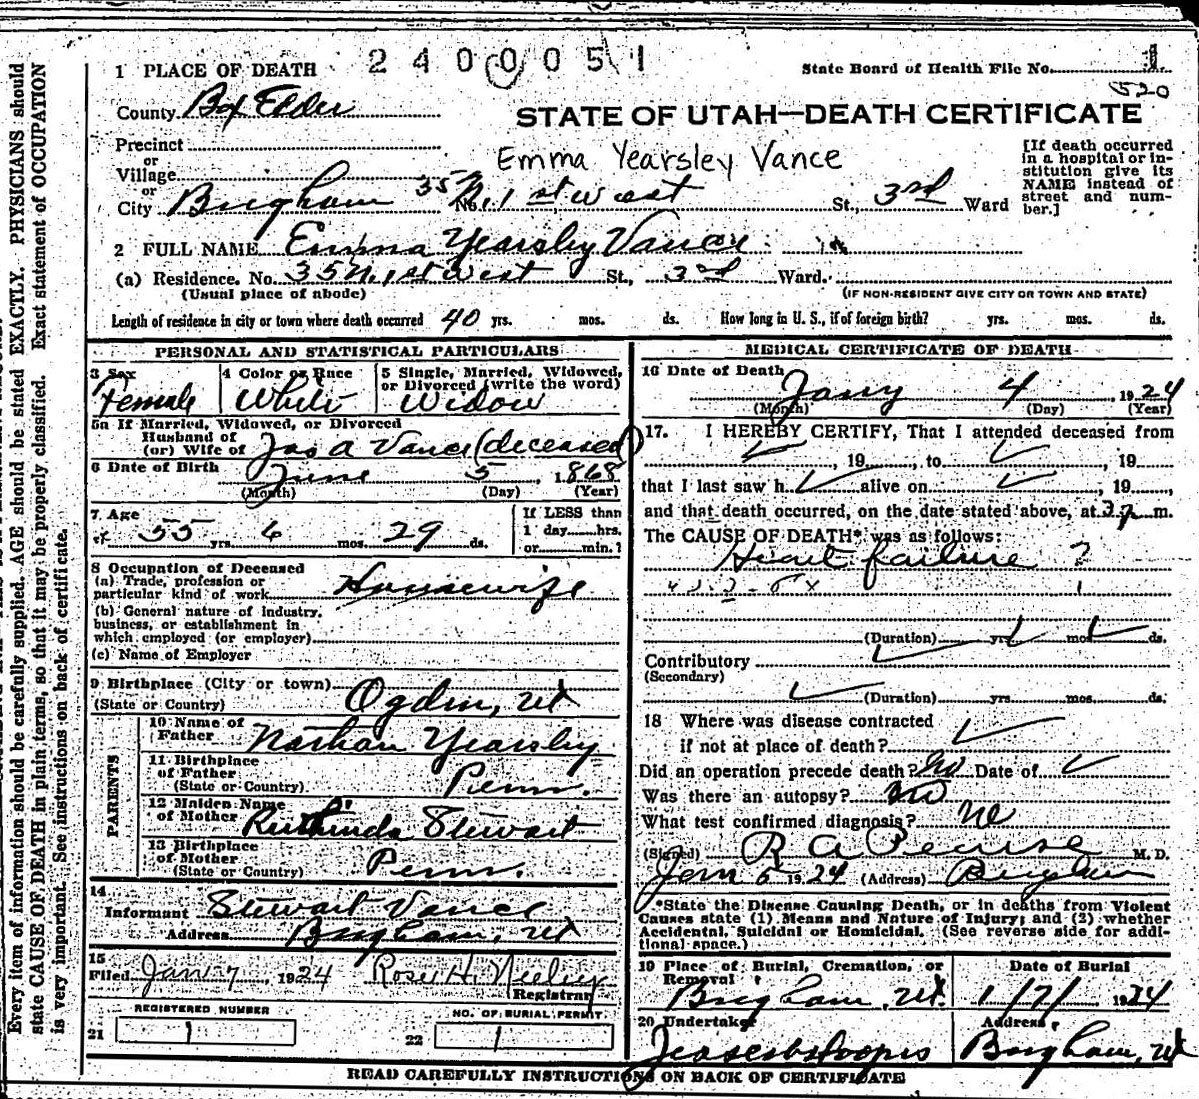 2400051
1 PLACE OF DEATH
State Board of Health File No. 1
520
County Box Elder
STATE OF UTAH—DEATH CERTIFICATE
Precinct
or
Village
or
City Brigham 35 N. 1st West St., 3rd Ward
Emma Yearsley Vance
[If death occurred
in a hospital or in-
stitution give its
NAME instead of
street and num-
ber.]
2 FULL NAME Emma Yearsley Vance
(a) Residence. No. 35 N. 1st West St., 3rd Ward.
(Usual place of abode)
(IF NON-RESIDENT GIVE CITY OR TOWN AND STATE)
Length of residence in city or town where death occurred 40 yrs. mos. ds. How long in U. S., if of foreign birth? yrs. mos. ds.
PERSONAL AND STATISTICAL PARTICULARS
3 Sex
Female
4 Color or Race
White
5 Single, Married, Widowed,
or Divorced (write the word)
Widow
5a If Married, Widowed, or Divorced
Husband of
(or) Wife of Jas A Vance (deceased)
6 Date of Birth June 5, 1868
(Month) (Day) (Year)
7 Age
55 yrs 6 mos. 29 ds.
If LESS than
1 day......hrs.
or......min.?
8 Occupation of Deceased
(a) Trade, profession or
particular kind of work Housewife
(b) General nature of industry,
business, or establishment in
which employed (or employer)
(c) Name of Employer
9 Birthplace (City or town)
(State or Country) Ogden, Ut
PARENTS
10 Name of
Father Nathan Yearsley
11 Birthplace
of Father
(State or Country) Penn.
12 Maiden Name
of Mother Ruthinda Stewart
13 Birthplace
of Mother
(State or Country) Penn.
14
Informant Stewart Vance
Address Brigham, Ut
15
Filed Jan 7, 1924 Rose H. Neeley
Registrar
REGISTERED NUMBER
21 1
NO. OF BURIAL PERMIT
22 1
MEDICAL CERTIFICATE OF DEATH
16 Date of Death
Jany 4, 1924
(Month) (Day) (Year)
17. I HEREBY CERTIFY, That I attended deceased from
, 19 , to , 19
that I last saw h alive on , 19
and that death occurred, on the date stated above, at 3 p m.
The CAUSE OF DEATH* was as follows:
Heart failure ?
(Duration) yrs mos ds.
Contributory
(Secondary)
(Duration) yrs. mos. ds.
18 Where was disease contracted
if not at place of death?
Did an operation precede death? No Date of
Was there an autopsy? No
What test confirmed diagnosis? No
(Signed) R A Pearse M. D.
Jan 6 1924 (Address) Brigham
*State the Disease Causing Death, or in deaths from Violent
Causes state (1) Means and Nature of Injury; and (2) whether
Accidental, Suicidal or Homicidal. (See reverse side for addi-
tional space.)
19 Place of Burial, Cremation, or
Removal
Brigham, Ut.
Date of Burial
1/7/ 1924
20 Undertaker
Address
Brigham, Ut
READ CAREFULLY INSTRUCTIONS ON BACK OF CERTIFICATE
Every item of information should be carefully supplied. AGE should be stated EXACTLY. PHYSICIANS should
state CAUSE OF DEATH in plain terms, so that it may be properly classified. Exact statement of OCCUPATION
is very important. See instructions on back of certificate.